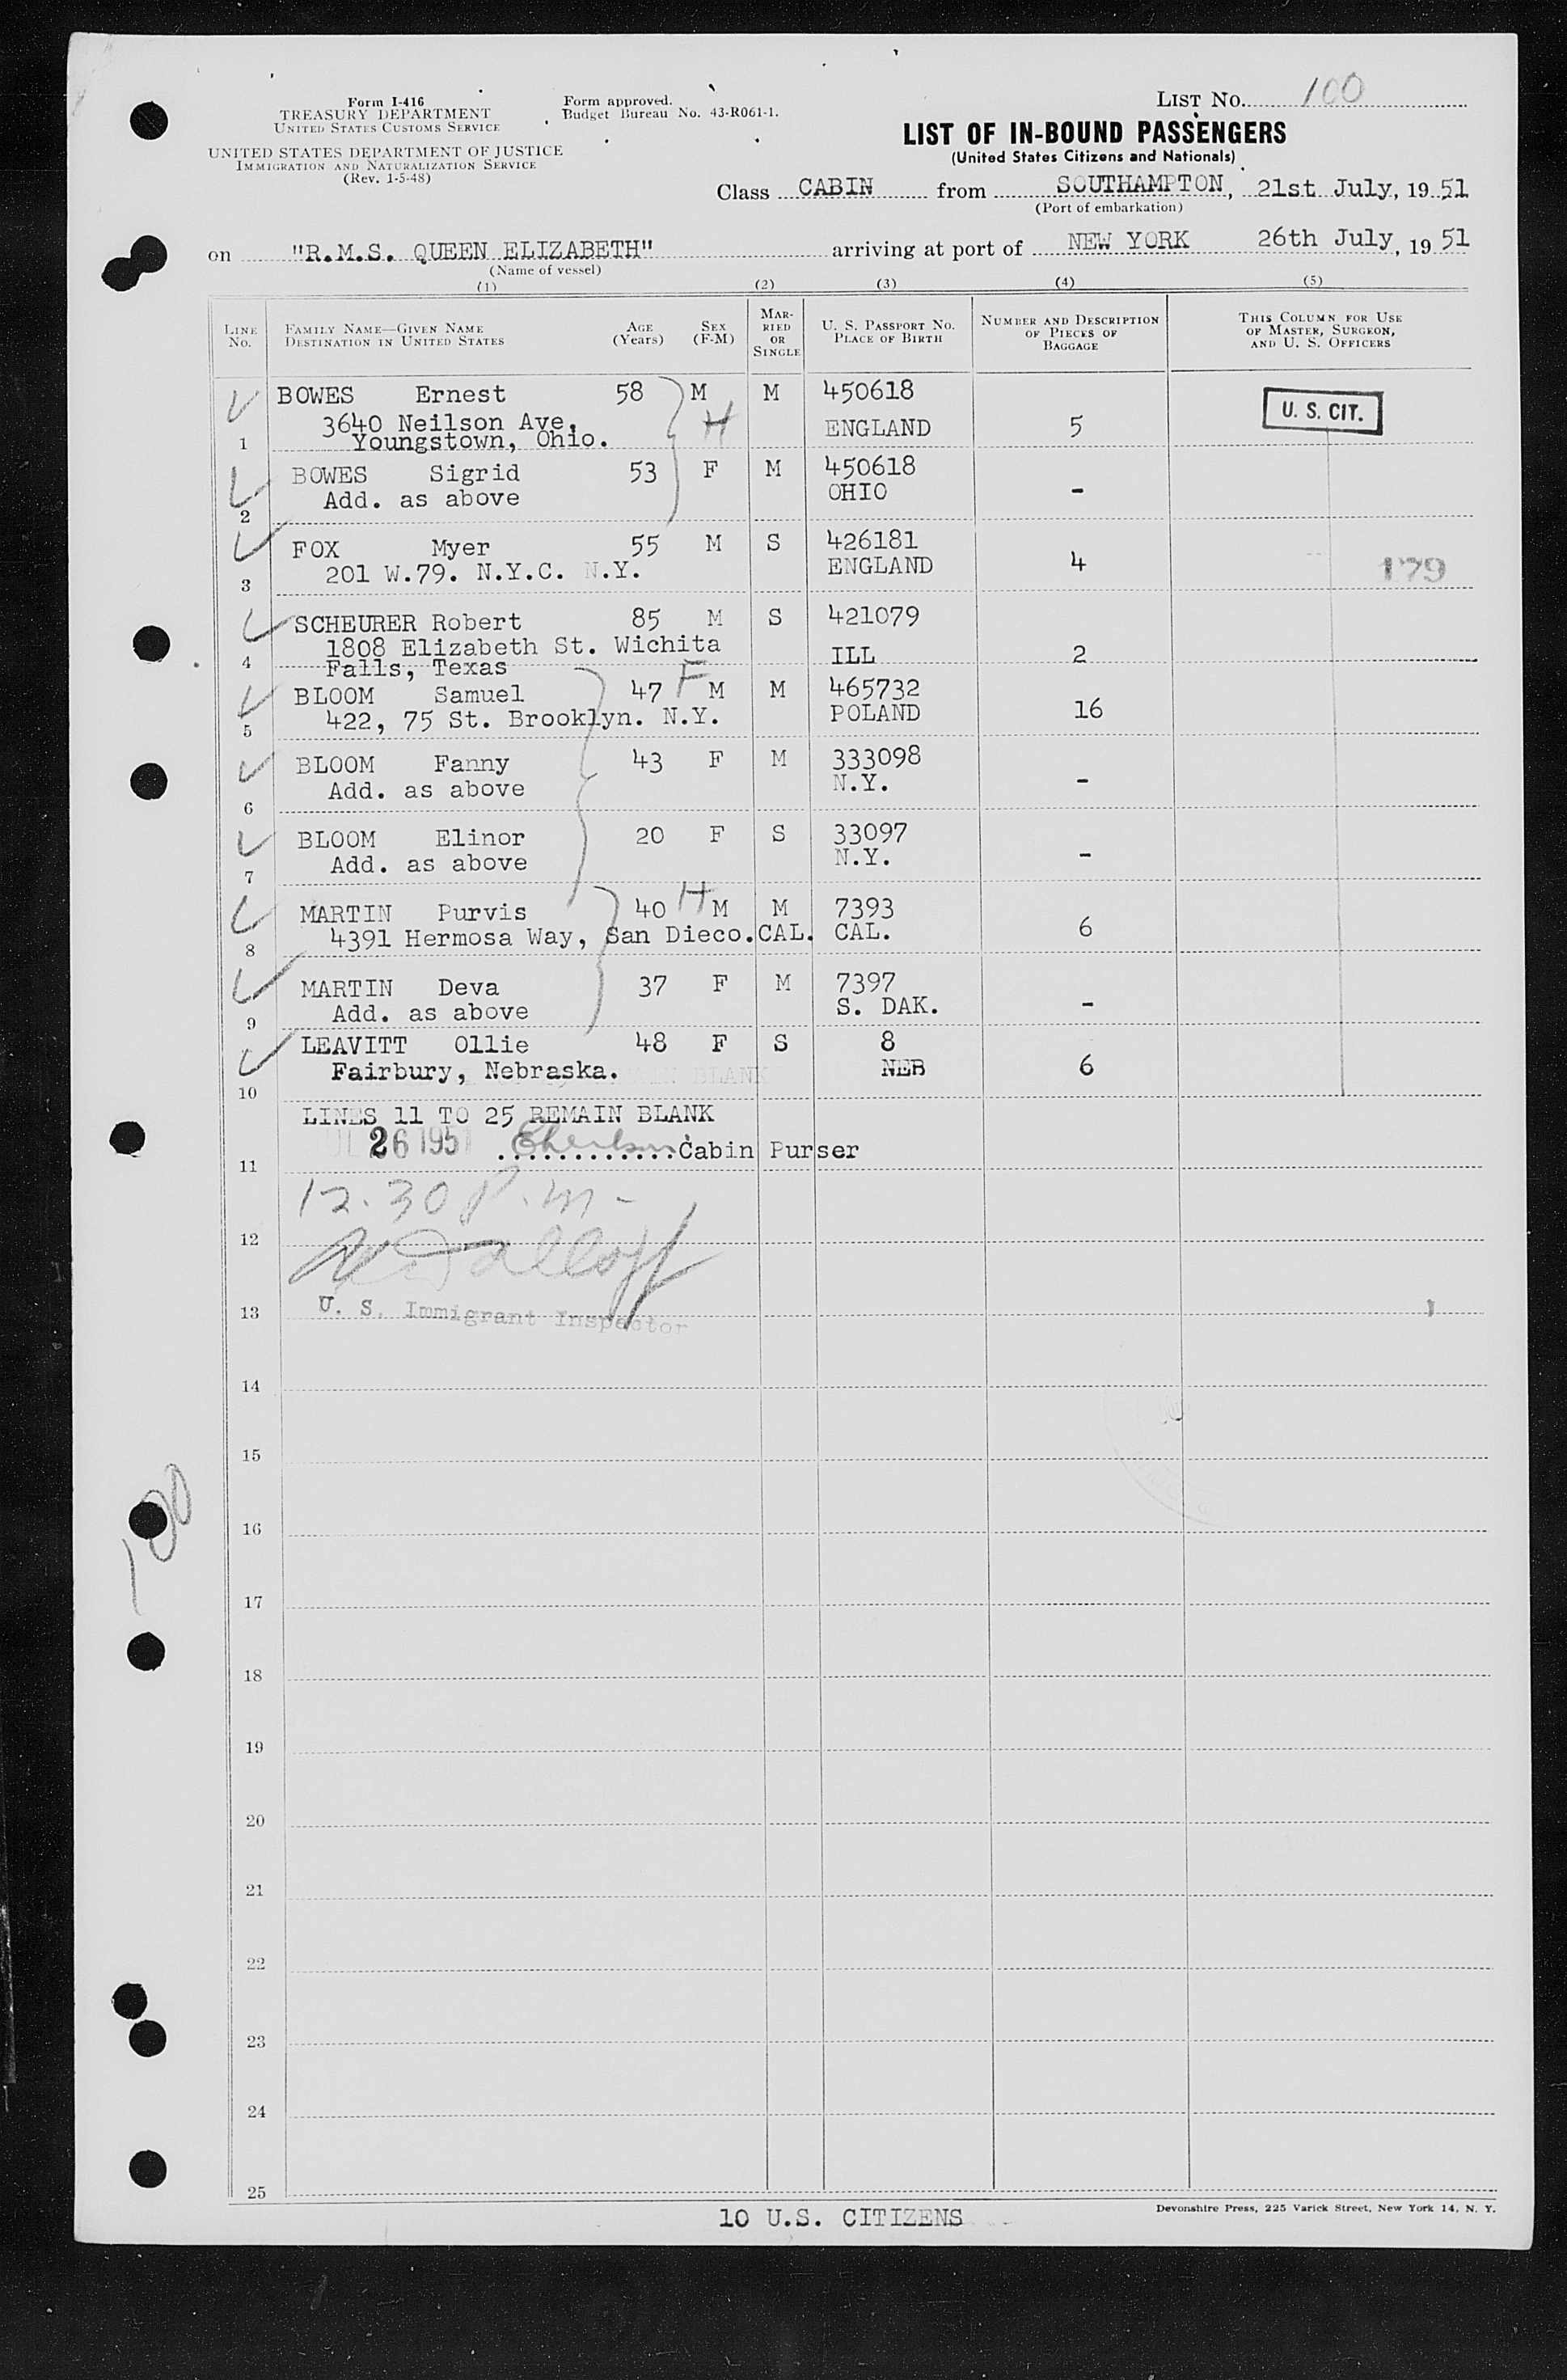 Form I-416
TREASURY DEPARTMENT
UNITED STATES CUSTOMS SERVICE
UNITED STATES DEPARTMENT OF JUSTICE
IMMIGRATION AND NATURALIZATION SERVICE
(Rev. 1-5-48)
Form approved.
Budget Bureau No. 43-R061-1.
LIST NO. 100
LIST OF IN-BOUND PASSENGERS
(United States Citizens and Nationals)
Class CABIN from SOUTHAMPTON, 21st July, 1951
(Port of embarkation)
on "R.M.S. QUEEN ELIZABETH" arriving at port of NEW YORK 26th July, 1951
(Name of vessel)
(1) (2) (3) (4) (5)
LINE NO. FAMILY NAME—GIVEN NAME DESTINATION IN UNITED STATES AGE (Years) SEX (F-M) MARRIED OR SINGLE U. S. PASSPORT NO. PLACE OF BIRTH NUMBER AND DESCRIPTION OF PIECES OF BAGGAGE THIS COLUMN FOR USE OF MASTER, SURGEON, AND U. S. OFFICERS
BOWES Ernest 58 M M 450618 U. S. CIT.
3640 Neilson Ave. H ENGLAND 5
1 Youngstown, Ohio.
BOWES Sigrid 53 F M 450618
Add. as above OHIO -
2
FOX Myer 55 M S 426181
3 201 W.79. N.Y.C. N.Y. ENGLAND 4 179
SCHEURER Robert 85 M S 421079
1808 Elizabeth St. Wichita ILL 2
4 Falls, Texas F
BLOOM Samuel 47 M M 465732
5 422, 75 St. Brooklyn. N.Y. POLAND 16
BLOOM Fanny 43 F M 333098
Add. as above N.Y. -
6
BLOOM Elinor 20 F S 33097
Add. as above N.Y. -
7
H
MARTIN Purvis 40 M M 7393
8 4391 Hermosa Way, San Dieco. CAL. CAL. 6
MARTIN Deva 37 F M 7397
9 Add. as above S. DAK. -
LEAVITT Ollie 48 F S 8
Fairbury, Nebraska. NEB 6
10
LINES 11 TO 25 REMAIN BLANK
26 1951 ............Cabin Purser
11
12.30 P.m-
12
13 U. S. Immigrant Inspector
14
15
16
100
17
18
19
20
21
22
23
24
25
10 U.S. CITIZENS
Devonshire Press, 225 Varick Street, New York 14, N. Y.